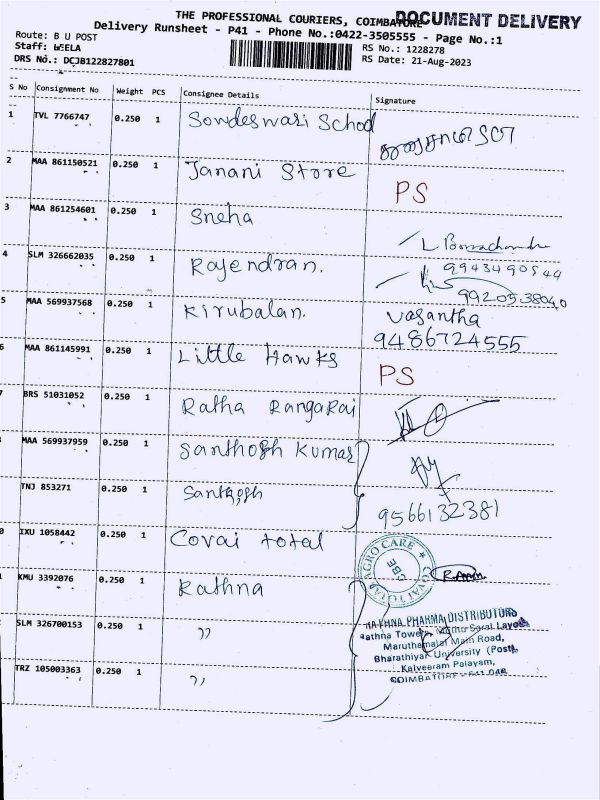 THE PROFESSIONAL COURIERS, COIMBATORE
DOCUMENT DELIVERY
Delivery Runsheet - P41 - Phone No.:0422-3505555 - Page No.:1
Route: B U POST
RS No.: 1228278
Staff: WEELA
RS Date: 21-Aug-2023
DRS No.: DCJB122827801
S No Consignment No Weight PCS Consignee Details Signature
1 TVL 7766747 0.250 1 Sowdeswari School
2 MAA 861150521 0.250 1 Janani Store PS
3 MAA 861254601 0.250 1 Sneha
4 SLM 326662035 0.250 1 Rajendran. 9943490544
9920538040
5 MAA 569937568 0.250 1 Kirubalan. Vasantha
9486724555
6 MAA 861145991 0.250 1 Little Hawks PS
7 BRS 51031052 0.250 1 Ratha Rangaraj
MAA 569937959 0.250 1 Santhosh Kumar
TNJ 853271 0.250 1 Santhosh 9566132381
0 IXU 1058442 0.250 1 Covai total
COVAI TOTAL AGRO CARE
CBE
1 KMU 3392076 0.250 1 Rathna
SLM 326700153 0.250 1 "
RATHNA PHARMA DISTRIBUTORS
Rathna Tower, Layout
Maruthamalai Main Road,
Bharathiyar University (Post),
Kalveeram Palayam,
COIMBATORE - 641 046
TRZ 105003363 0.250 1 "